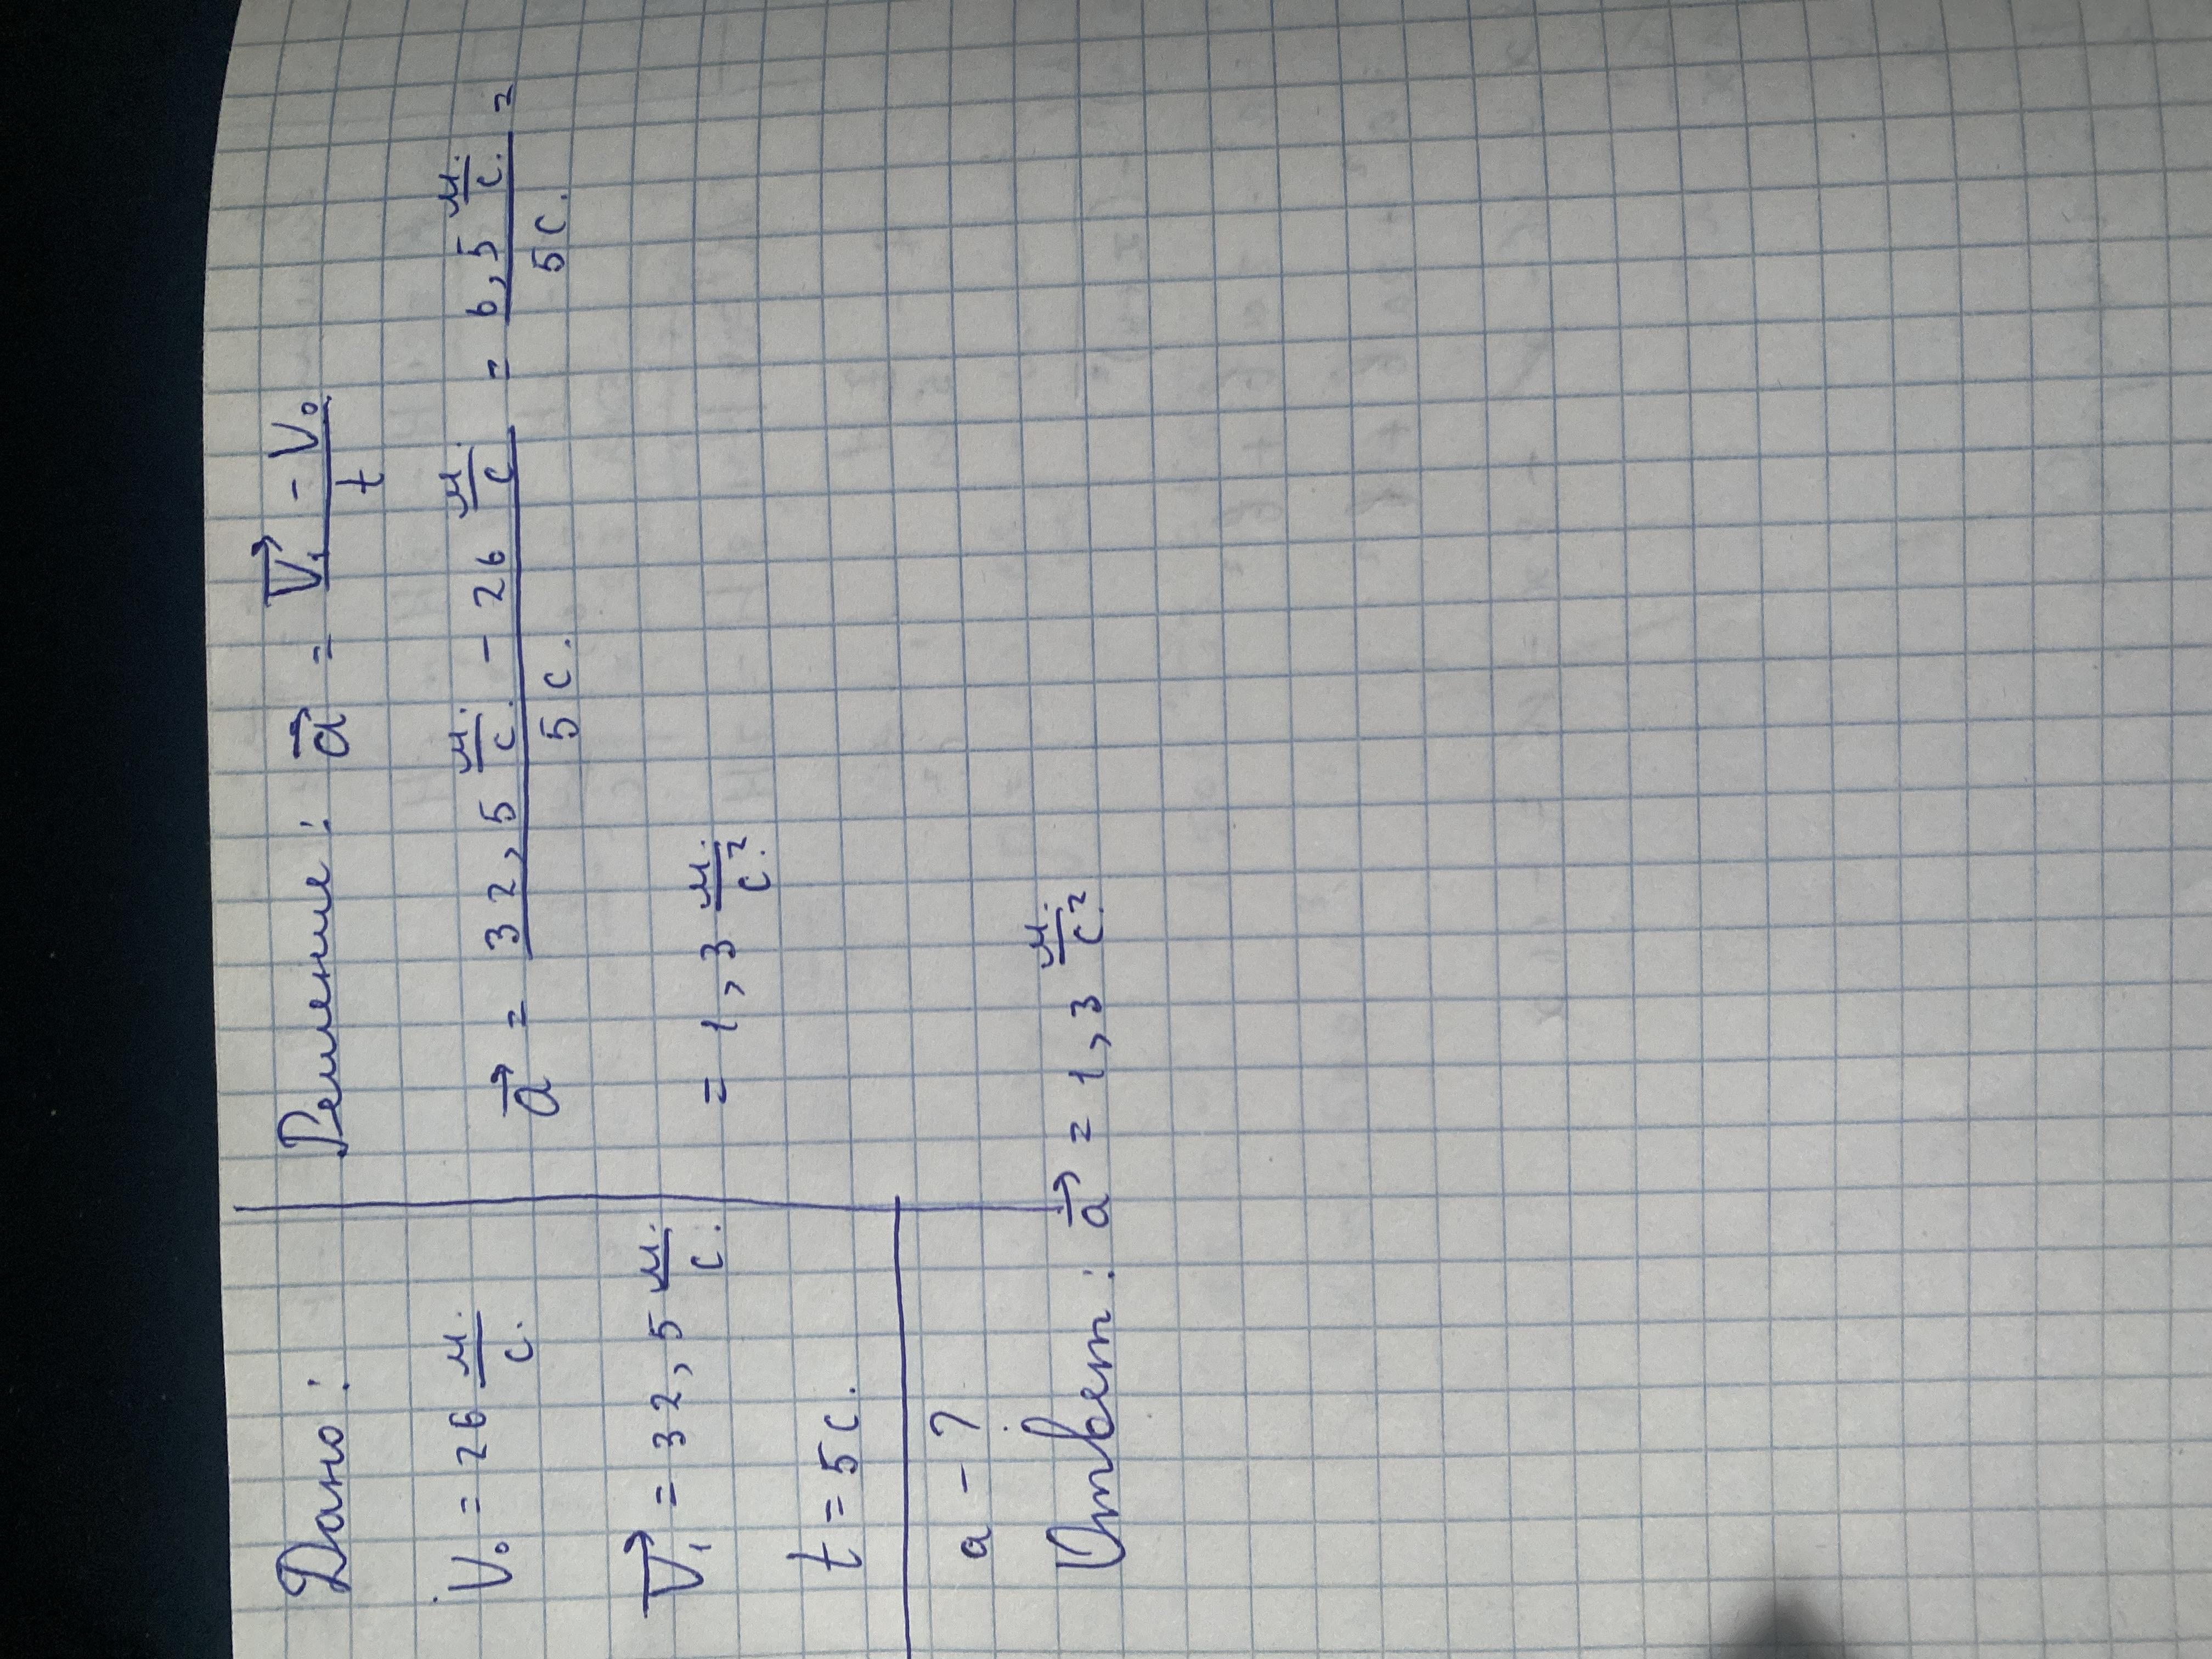 Дано:
V₀ = 26 м./с.
V⃗₁ = 32,5 м./с.
t = 5 с.
a - ?
Решение: a⃗ = (V⃗₁ - V₀)/t
a⃗ = (32,5 м./с. - 26 м./с)/5 с. = (6,5 м./с.)/5 с. =
= 1,3 м./с.²
Ответ: a⃗ = 1,3 м./с.²